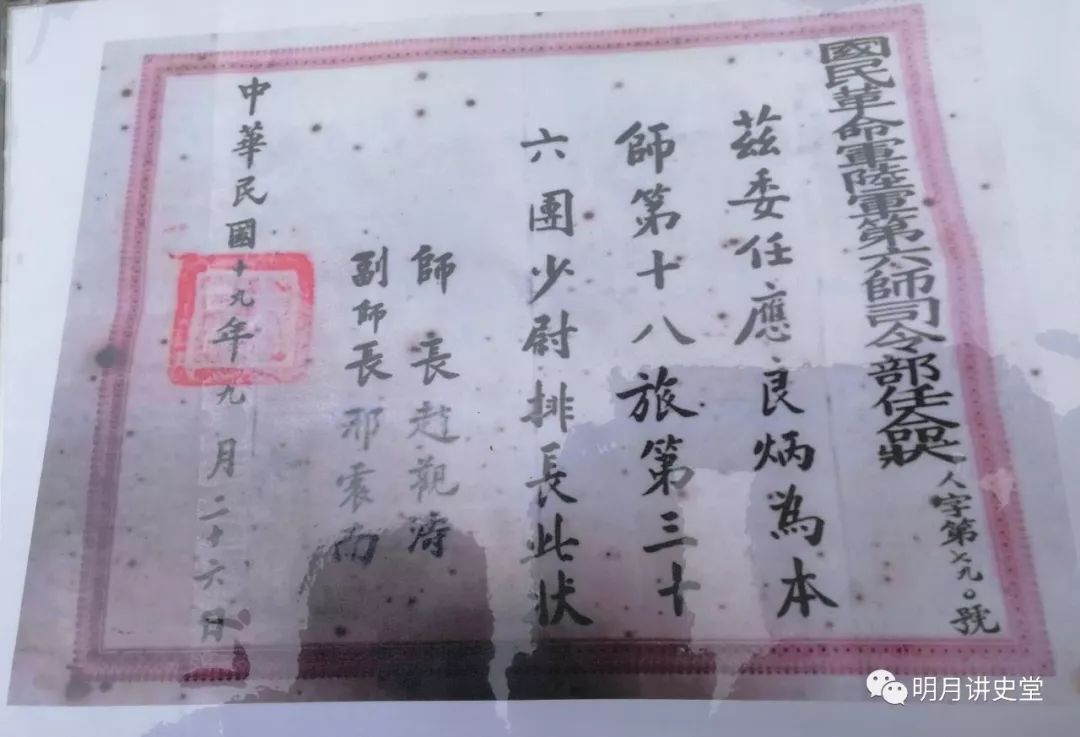 國民革命軍陸軍第六師司令部任命狀
人字第七九〇號
茲委任應良炳為本
師第十八旅第三十
六團少尉排長此狀
師長趙觀濤
副師長邢震南
中華民國十九年九月二十六日
明月讲史堂